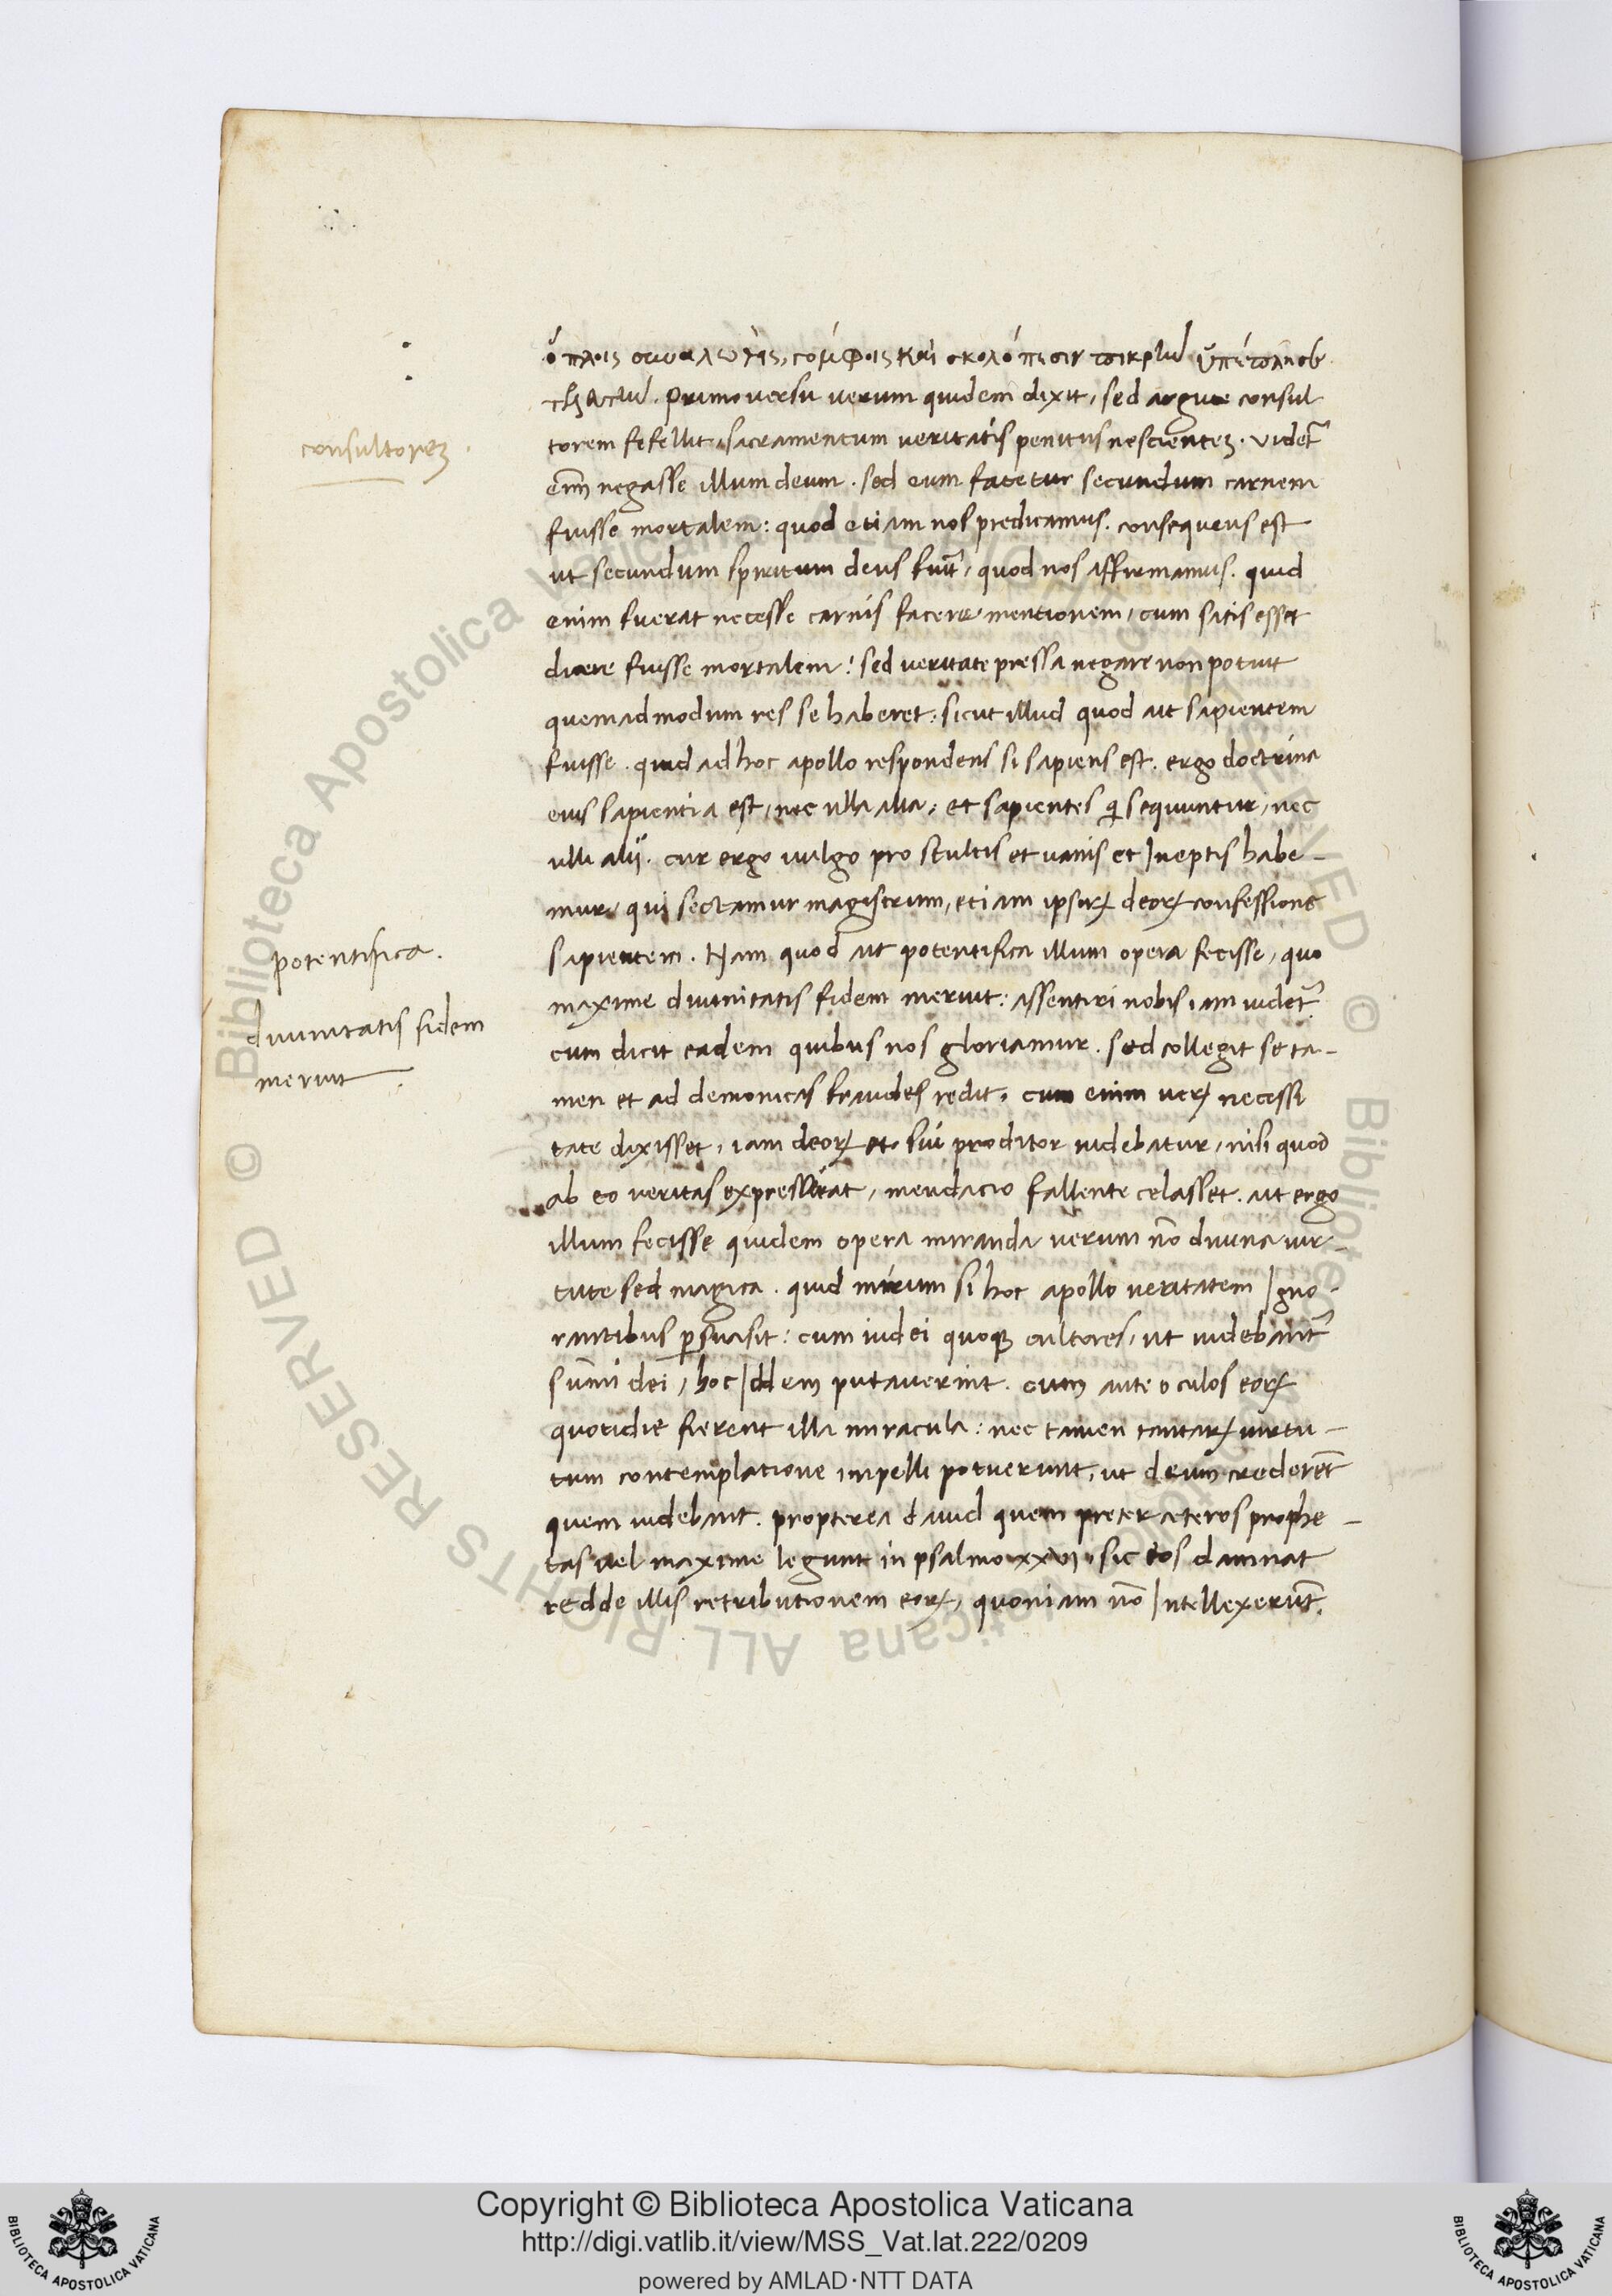 ὅπλοις συναλωθεὶς, γόμφοις καὶ σκολόπεσιν πικρὴν
τελευτήν. Primo versu verum quidem dixit, sed argute consul
consultorem.
torem fefellit: sacramentum veritatis penitus nescientem. videt᷑
eīm negasse illum deum. sed eum fatetur secundum carnem
fuisse mortalem: quod etiam nos predicamus. consequens est
ut secundum spiritum deus fuit, quod nos affirmamus. quid
enim fuerat necesse carnis facere mentionem, cum satis esset
dicere fuisse mortalem! sed veritate pressa negare non potuit
quemadmodum res se haberet: sicut illud quod ait sapientem
fuisse. quid ad hoc apollo respondens si sapiens est. ergo doctrina
eius sapientia est, nec ulla alia, et sapientes q̄ sequuntur, nec
ulli alij. cur ergo vulgo pro stultis et vanis et Ineptis habe-
mur, qui sectamur magistrum, etiam ipsoꝝ deoꝝ confessione
potentifica.
sapientem. Nam quod ait potentifica illum opera fecisse, quo
divinitatis fidem
meruit
maxime divinitatis fidem meruit: assentiri nobis iam videt᷑.
cum dicit eadem quibus nos gloriamur. sed collegit se ta-
men et ad demonicas fraudes redit. cum enim veꝝ necessi
tate dixisset, iam deoꝝ et sui proditor videbatur, nisi quod
ab eo veritas expresserat, mendacio fallente celasset. ait ergo
illum fecisse quidem opera miranda verum nō divina vir-
tute sed magica. quid mirum si hoc apollo veritatem Igno-
rantibus ꝑsuasit: cum iudei quoqꝫ cultores, ut videbant᷑
sūmi dei, hoc Iddem putaverint. cum ante oculos eoꝝ
quotidie fierent illa miracula: nec tamen tantaꝝ virtu-
tum contemplatione impelli potuerunt, ut deum crederēt
quem videbant. propterea david quem preter ceteros prophe-
tas vel maxime legunt in psalmo xxvi. sic eos damnat
redde illis retributionem eoꝝ, quoniam nō Intellexerūt.
Copyright © Biblioteca Apostolica Vaticana
http://digi.vatlib.it/view/MSS_Vat.lat.222/0209
powered by AMLAD·NTT DATA
BIBLIOTECA APOSTOLICA VATICANA
BIBLIOTECA APOSTOLICA VATICANA
© Biblioteca Apostolica Vaticana ALL RIGHTS RESERVED © Biblioteca Apostolica Vaticana ALL RIGHTS RESERVED